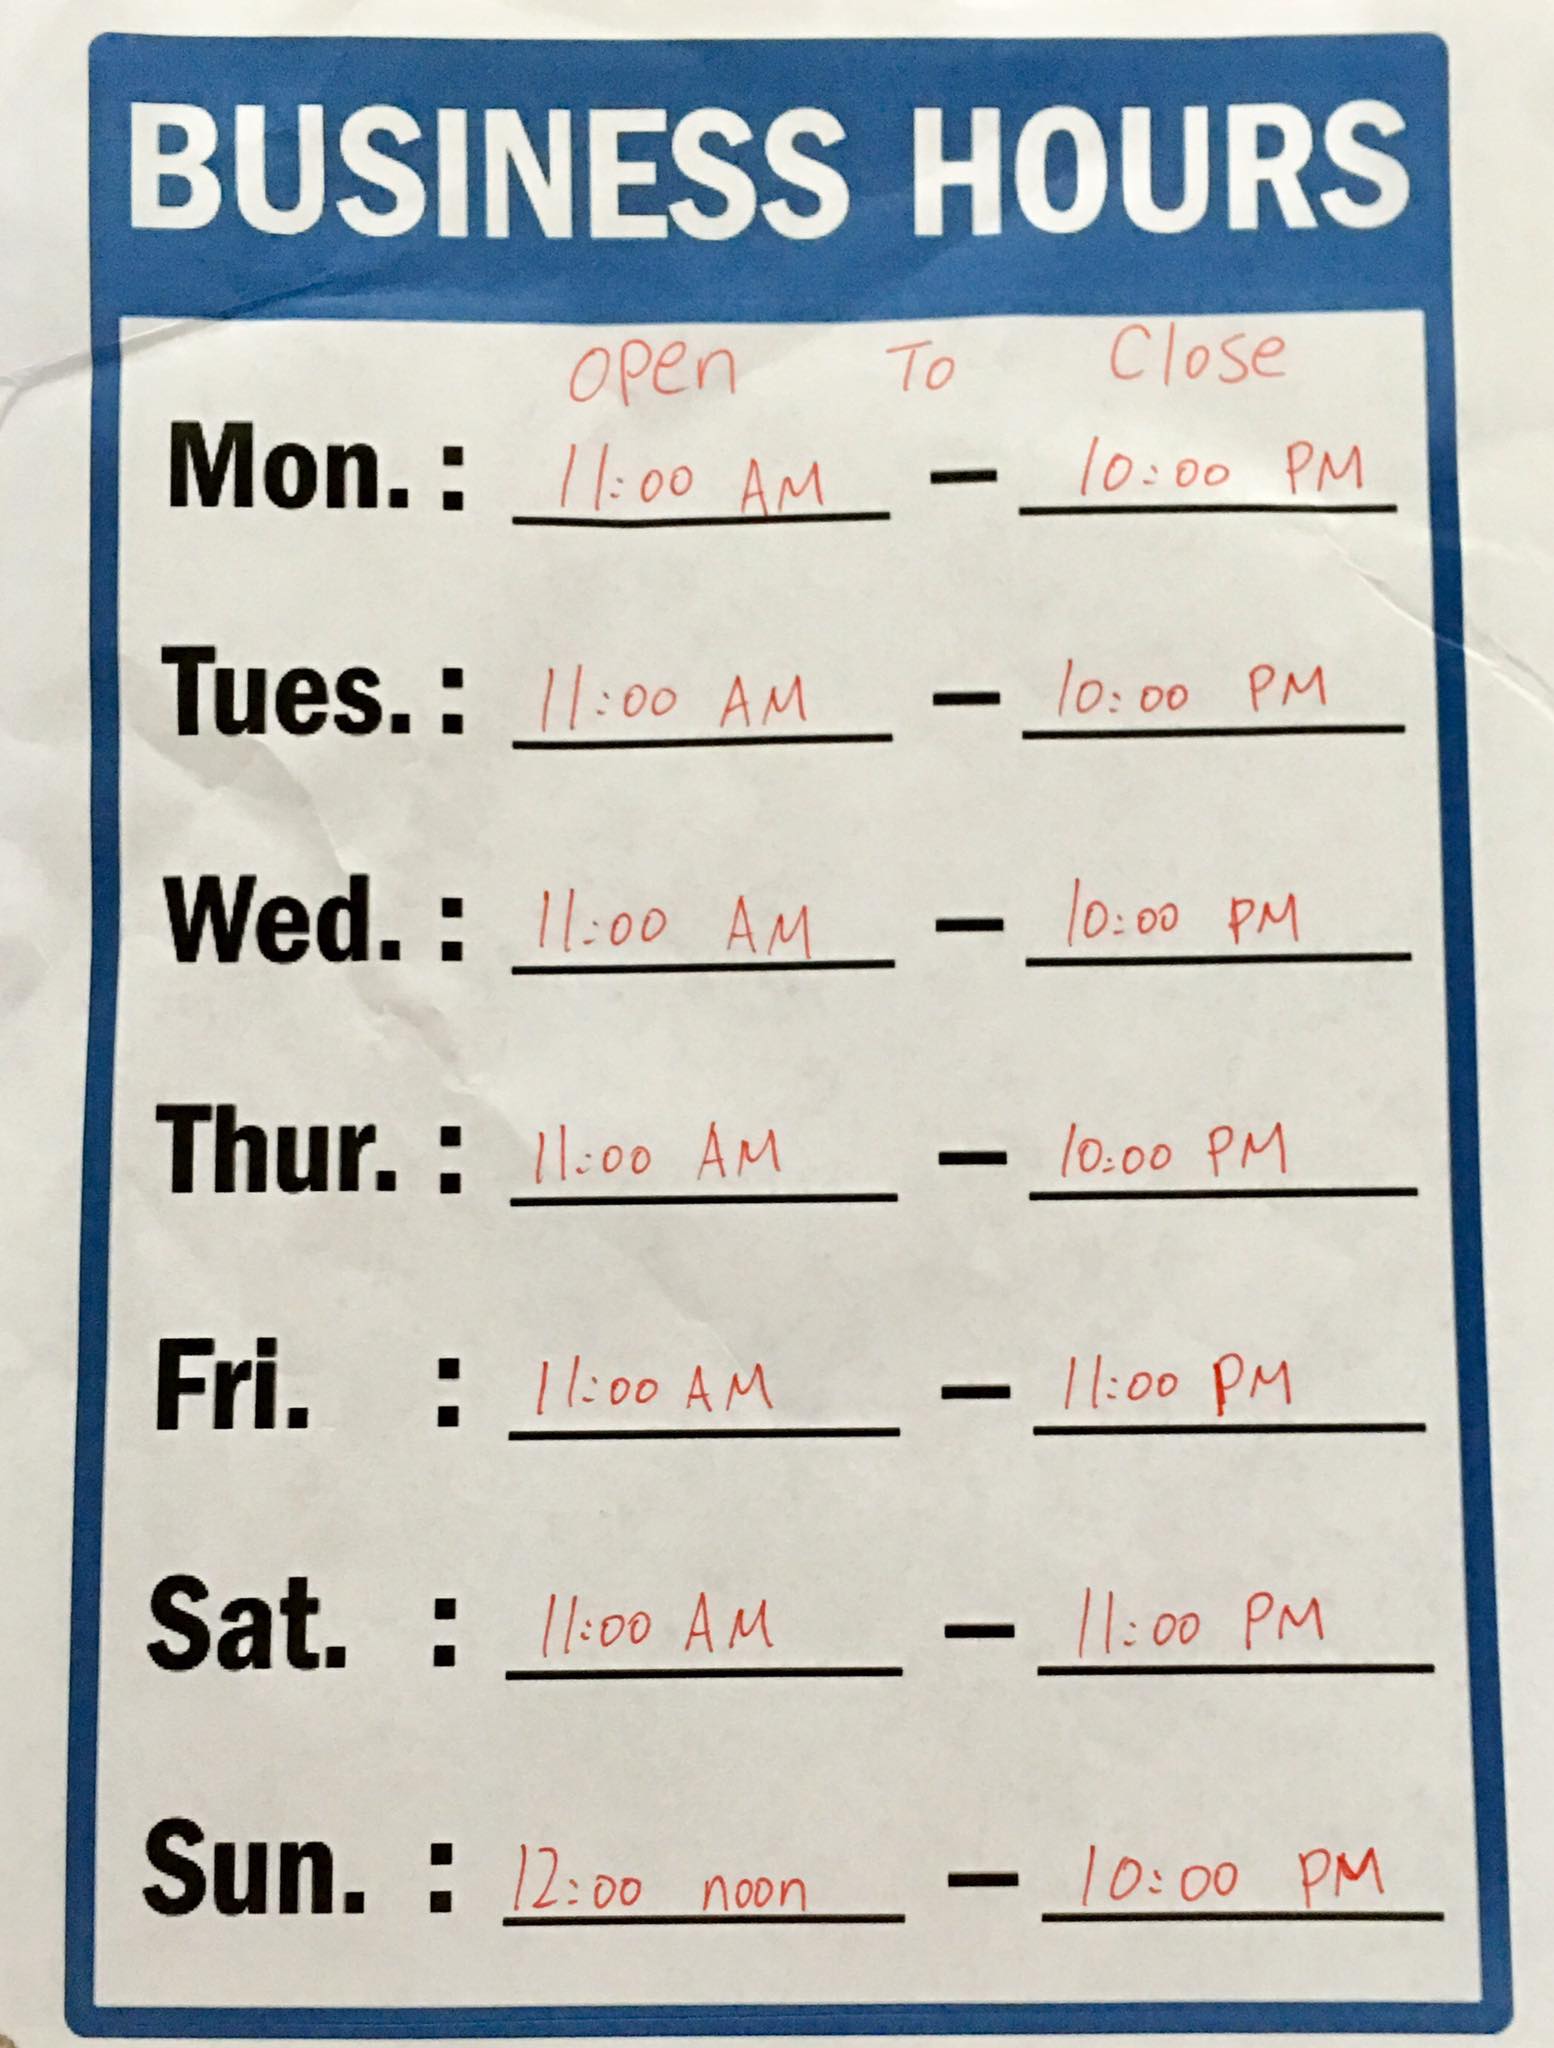 BUSINESS HOURS
open To Close
Mon. : 11:00 AM — 10:00 PM
Tues. : 11:00 AM — 10:00 PM
Wed. : 11:00 AM — 10:00 PM
Thur. : 11:00 AM — 10:00 PM
Fri. : 11:00 AM — 11:00 PM
Sat. : 11:00 AM — 11:00 PM
Sun. : 12:00 noon — 10:00 PM